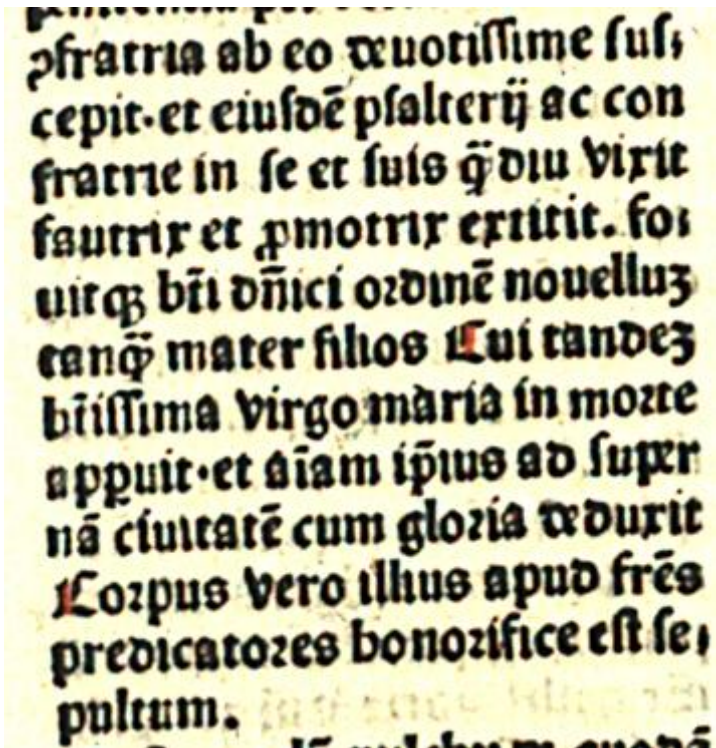 ꝯfratria ab eo deuotiſſime ſuſ⸗
cepit. et eiuſdē pſalterij ac con
fratrie in ſe et ſuis q̄̈diu vixit
fautrix et ꝓmotrix extitit. fo⸗
uitqꝫ bt̄i dn̄ici ordinē nouelluꝫ
tanq̄̈ mater filios Cui tandeꝫ
bt̄iſſima virgo maria in morte
apꝑuit. et aīam ip̄ius ad ſuper
nā ciuitatē cum gloria deduxit
Corpus vero illius apud fr̄es
predicatores honorifice eſt ſe⸗
pultum.